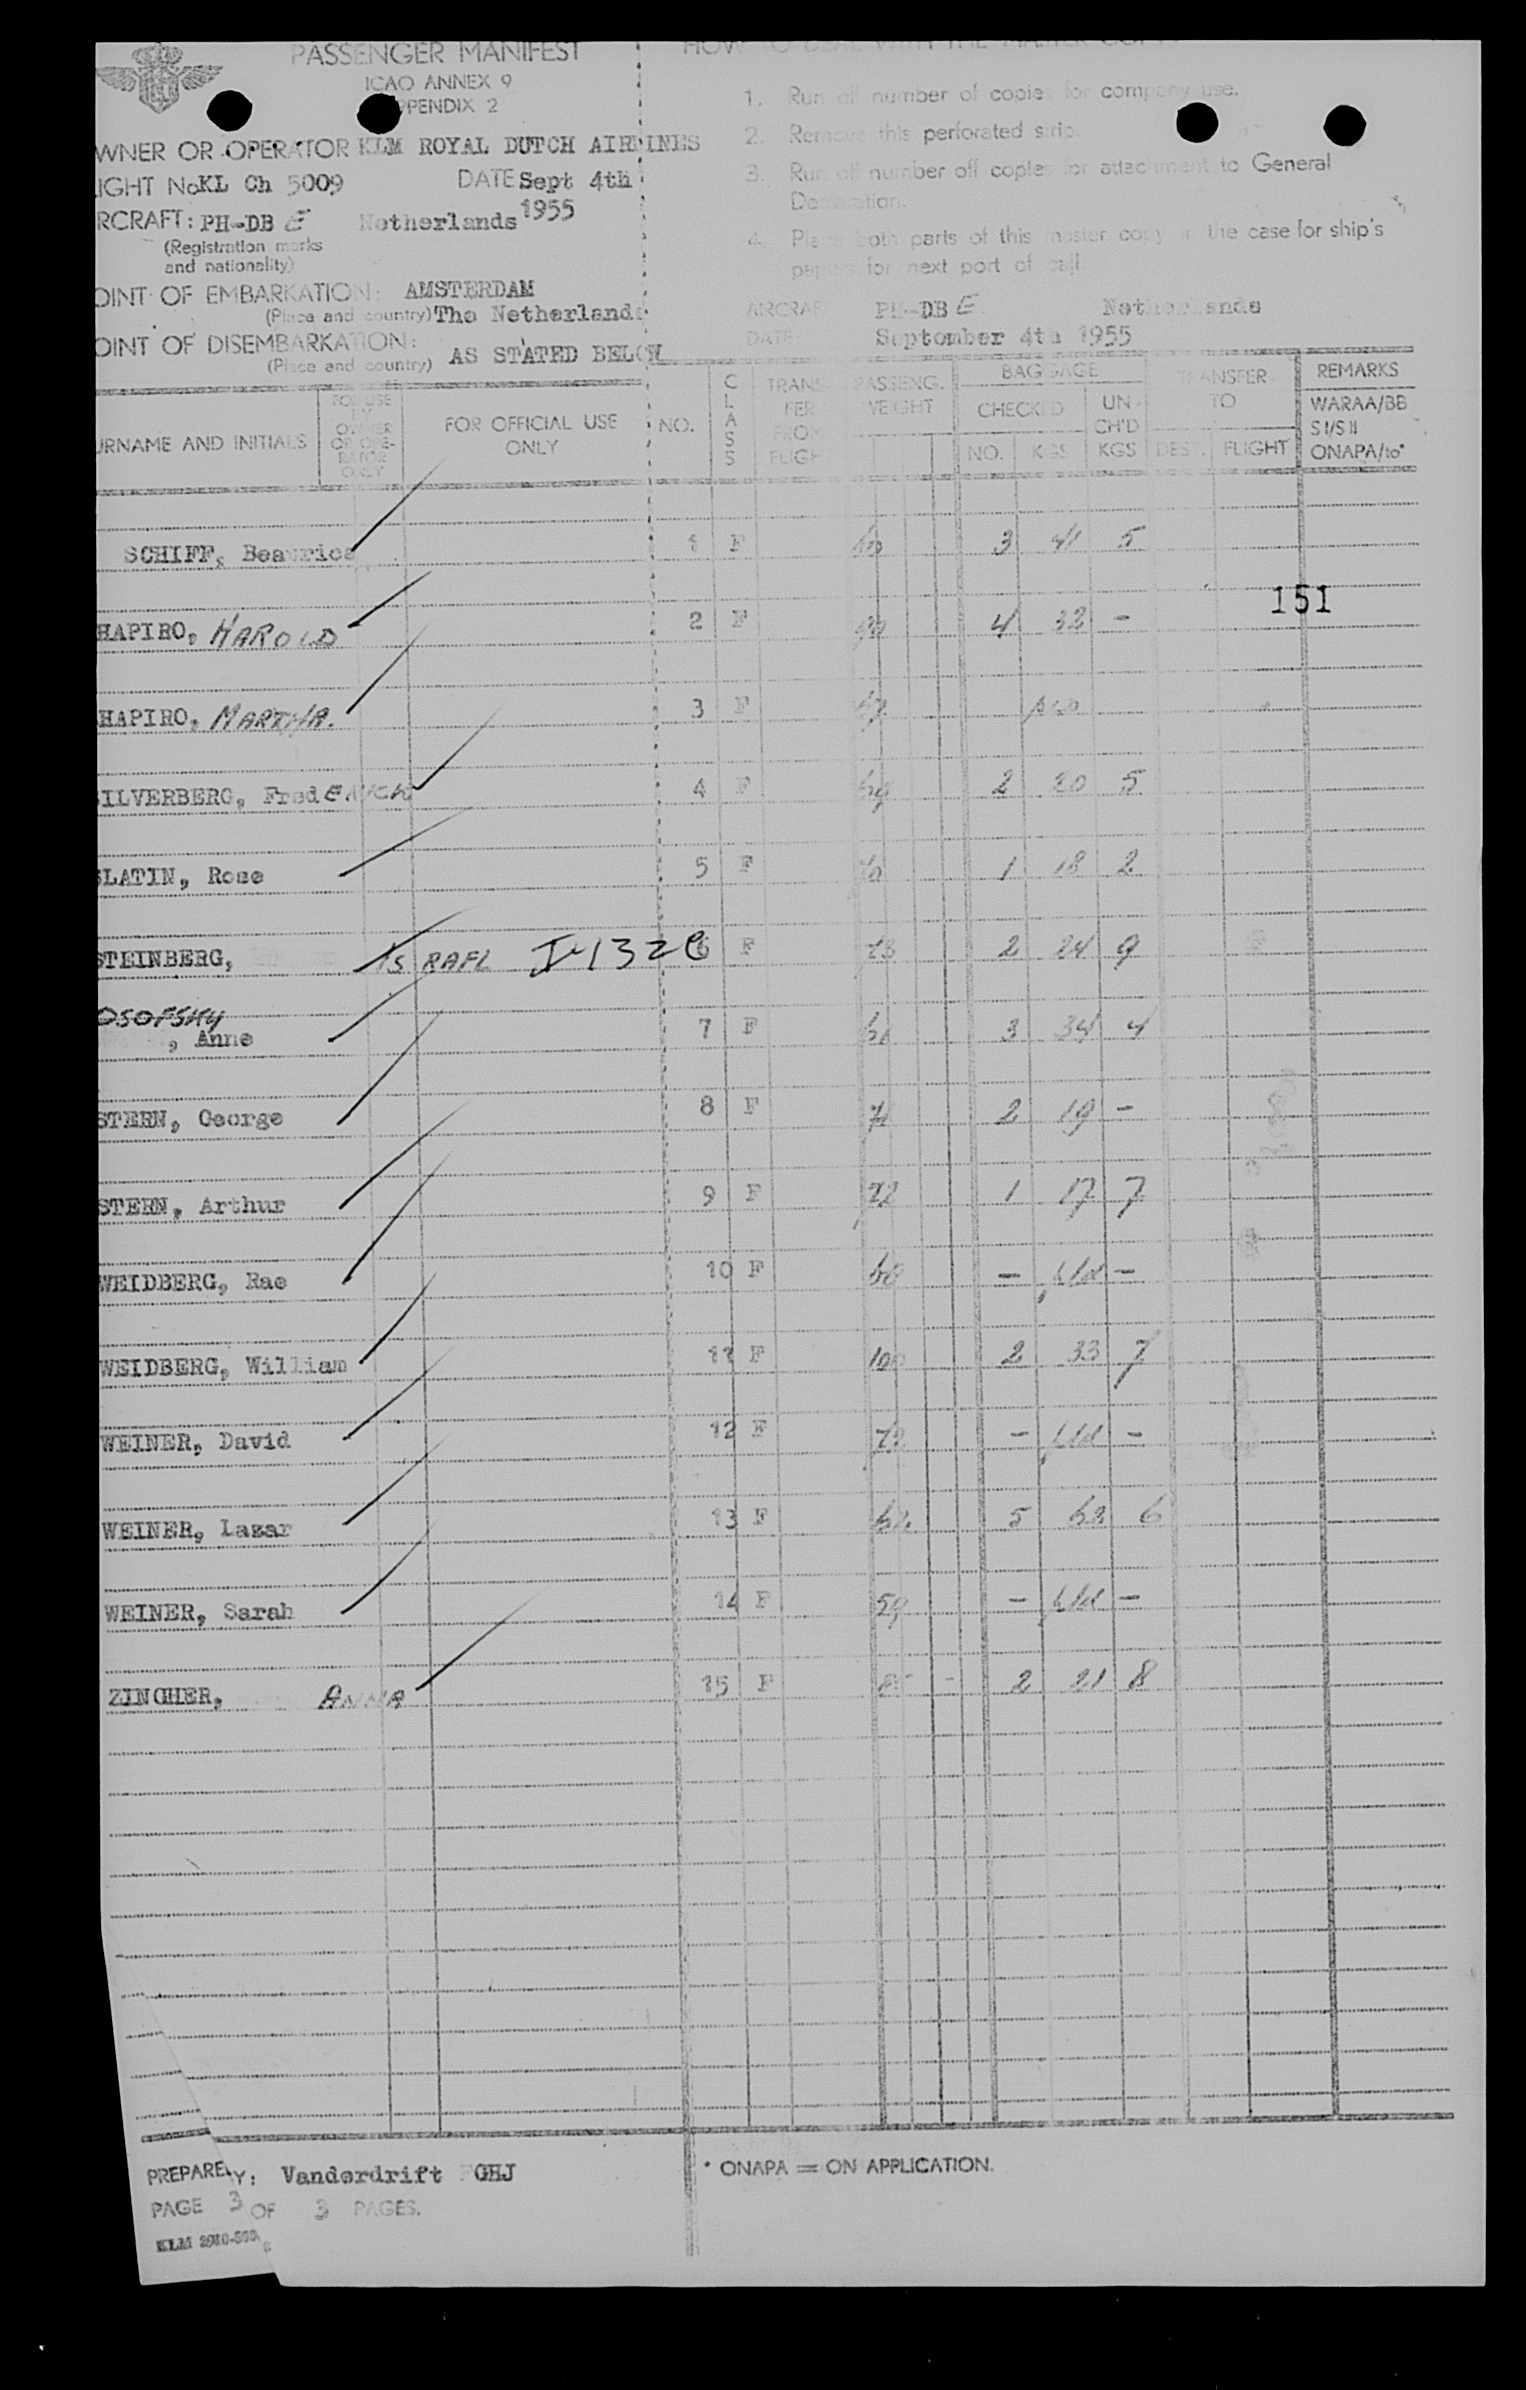 PASSENGER MANIFEST
ICAO ANNEX 9
PPENDIX 2
WNER OR OPERATOR KLM ROYAL DUTCH AIRLINES
IGHT No KL Ch 5009 DATE Sept 4th
1955
RCRAFT: PH-DB E Netherlands
(Registration marks
and nationality)
OINT OF EMBARKATION: AMSTERDAM
(Place and country) The Netherlands
OINT OF DISEMBARKATION:
(Place and country) AS STATED BELOW
HOW TO DEAL WITH THE MASTER COPY
1. Run off number of copies for company use.
2. Remove this perforated strip.
3. Run off number off copies for attachment to General
Declaration.
4. Place both parts of this master copy in the case for ship's
papers for next port of call
AIRCRAFT PH-DB E Netherlands
DATE: September 4th 1955
URNAME AND INITIALS FOR USE BY OWNER OR OPE-RATOR ONLY FOR OFFICIAL USE ONLY NO. CLASS TRANSFER FROM FLIGHT PASSENG. WEIGHT BAGGAGE CHECKED NO. KGS UN-CH'D KGS TRANSFER TO DEST. FLIGHT REMARKS WARAA/BB SI/SII ONAPA/to*
SCHIFF, Beatrice 1 F 3 41 5
151
HAPIRO, HAROLD 2 F 4 32 -
HAPIRO, MARTHA. 3 F
SILVERBERG, FredERICK 4 F 2 20 5
SLATIN, Rose 5 F 1 18 2
STEINBERG, ISRAEL 6 F 73 2 24 9
OSOFSKY
, Anne 7 F 3 34 4
STERN, George 8 F 2 19 -
STERN, Arthur 9 F 72 1 17 7
WEIDBERG, Rae 10 F - -
WEIDBERG, William 11 F 100 2 33 7
WEINER, David 12 F - -
WEINER, Lazar 13 F 5 6
WEINER, Sarah 14 F 59 - -
ZINGHER, ANNA 15 F - 2 21 8
PREPARE Y: Vanderdrift GHJ
* ONAPA = ON APPLICATION.
PAGE 3 OF 3 PAGES.